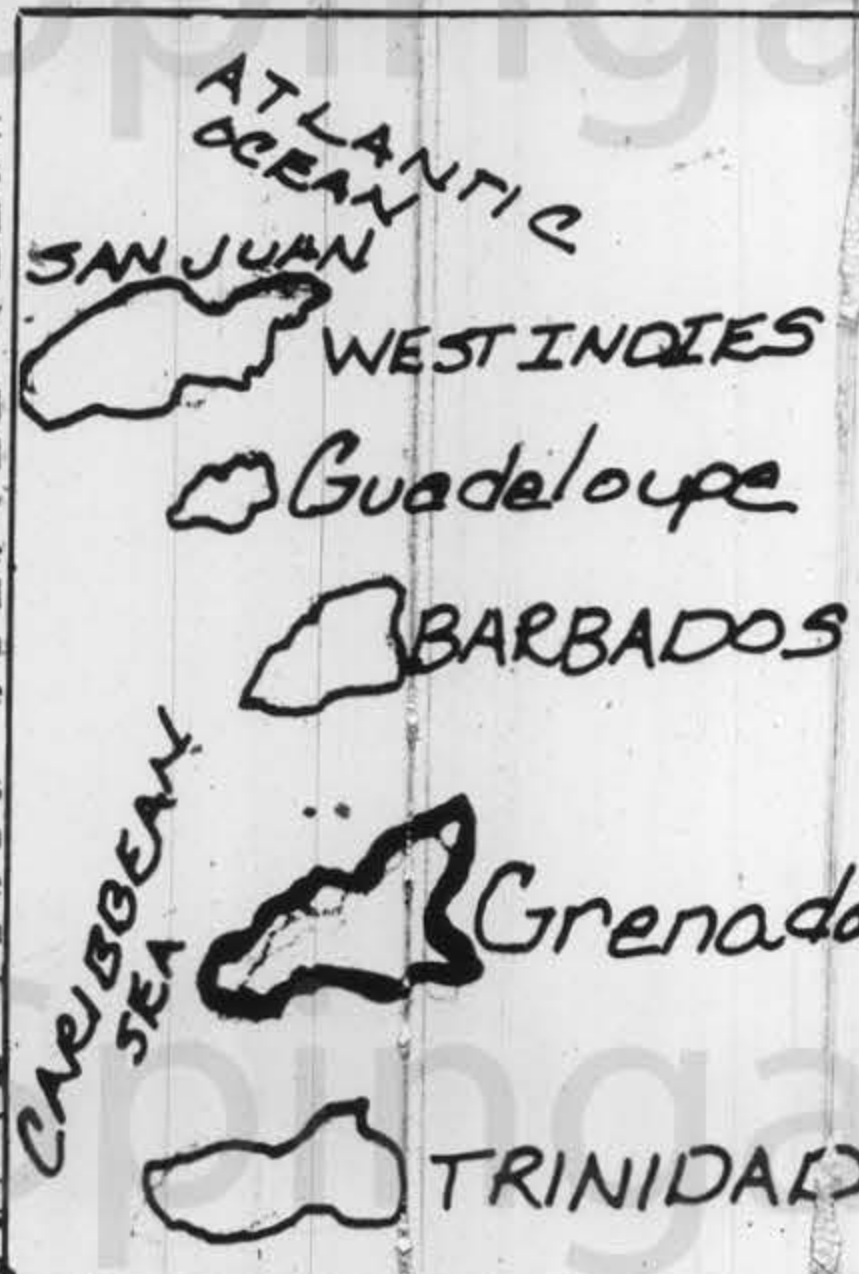 ATLANTIC
OCEAN
SAN JUAN
WEST INDIES
Guadeloupe
BARBADOS
CARIBBEAN
SEA
Grenada
TRINIDAD